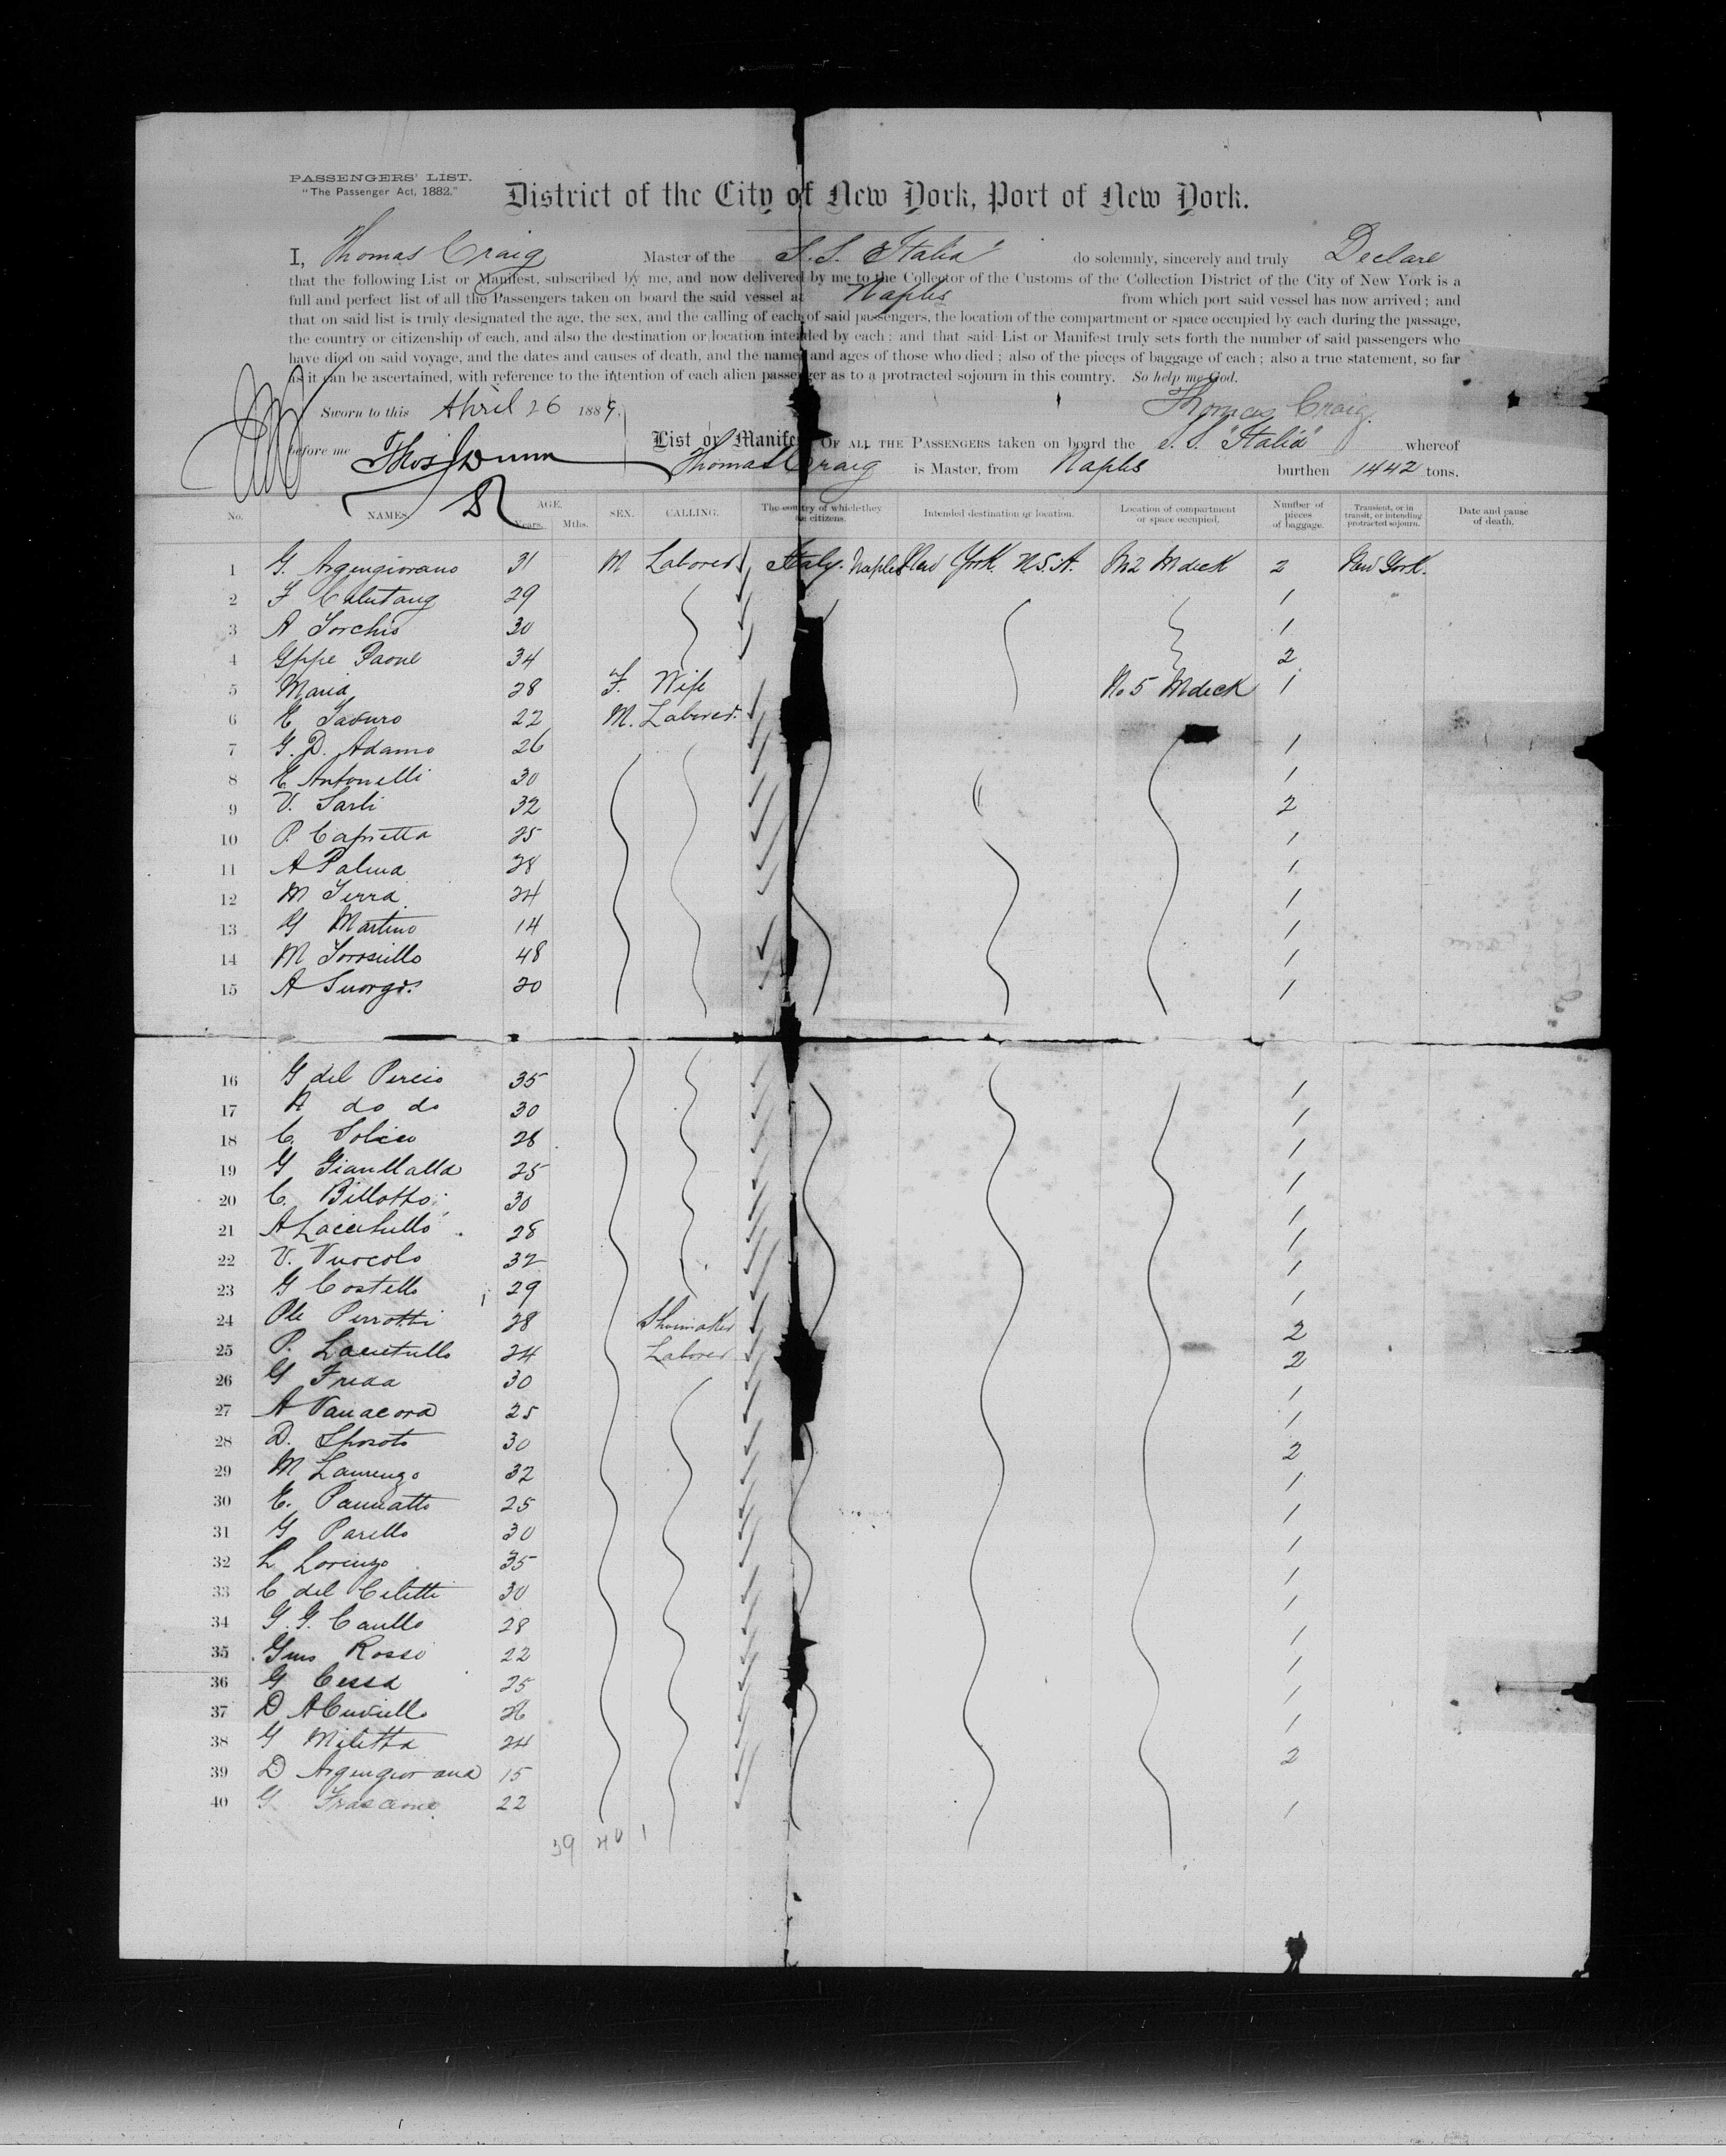 PASSENGERS' LIST.
"The Passenger Act, 1882."
District of the City of New York, Port of New York.
I, Thomas Craig Master of the S.S. Italia do solemnly, sincerely and truly Declare
that the following List or Manifest, subscribed by me, and now delivered by me to the Collector of the Customs of the Collection District of the City of New York is a
full and perfect list of all the Passengers taken on board the said vessel at Naples from which port said vessel has now arrived; and
that on said list is truly designated the age, the sex, and the calling of each of said passengers, the location of the compartment or space occupied by each during the passage,
the country or citizenship of each, and also the destination or location intended by each; and that said List or Manifest truly sets forth the number of said passengers who
have died on said voyage, and the dates and causes of death, and the names and ages of those who died; also of the pieces of baggage of each; also a true statement, so far
as it can be ascertained, with reference to the intention of each alien passenger as to a protracted sojourn in this country. So help me God.
Sworn to this April 26 1889. Thomas Craig.
before me Thos Dunn
List or Manifest OF ALL THE PASSENGERS taken on board the S.S. "Italia" whereof
Thomas Craig is Master, from Naples burthen 1442 tons.
No. NAMES. AGE. Years. Mths. SEX. CALLING. The country of which they are citizens. Intended destination or location. Location of compartment or space occupied. Number of pieces of baggage. Transient, or in transit, or intending protracted sojourn. Date and cause of death.
1 G. Argengiorano 31 M Laborer Italy. Naples New York. U.S.A. No2 Mdeck 2 New York.
2 F 29 1
3 A Torchio 30 1
4 Gppe Paone 34 2
5 Maria 28 F. Wife No 5 Mdeck 1
6 22 M. Laborer.
7 G. D. Adamo 26 1
8 E Antonelli 30 1
9 V. Sarli 32 2
10 P. Capretta 25 1
11 A Palma 28 1
12 M Serra 24 1
13 G Martino 14 1
14 M 48 1
15 A 20 1
16 G del Percio 35 1
17 A do do 30 1
18 C. 28 1
19 G 25 1
20 C. Billotto 30 1
21 A Laccetullo 28 1
22 V. Vuocolo 32 1
23 G Costello 29 1
24 Ple Perrotti 28 Shumaker 2
25 P. Laccetullo 24 Laborer 2
26 G Freda 30 1
27 A Vanacora 25 1
28 D. Sposoto 30 2
29 M Laurenzo 32 1
30 E. 25 1
31 G Parello 30 1
32 L Lorenzo 35 1
33 C del Celetti 30 1
34 G. G. Caullo 28 1
35 Rosso 22 1
36 G Cessa 25 1
37 D 26 1
38 G Miletta 24 2
39 D Argengiorana 15
40 G Frascone 22 1
39 40 1